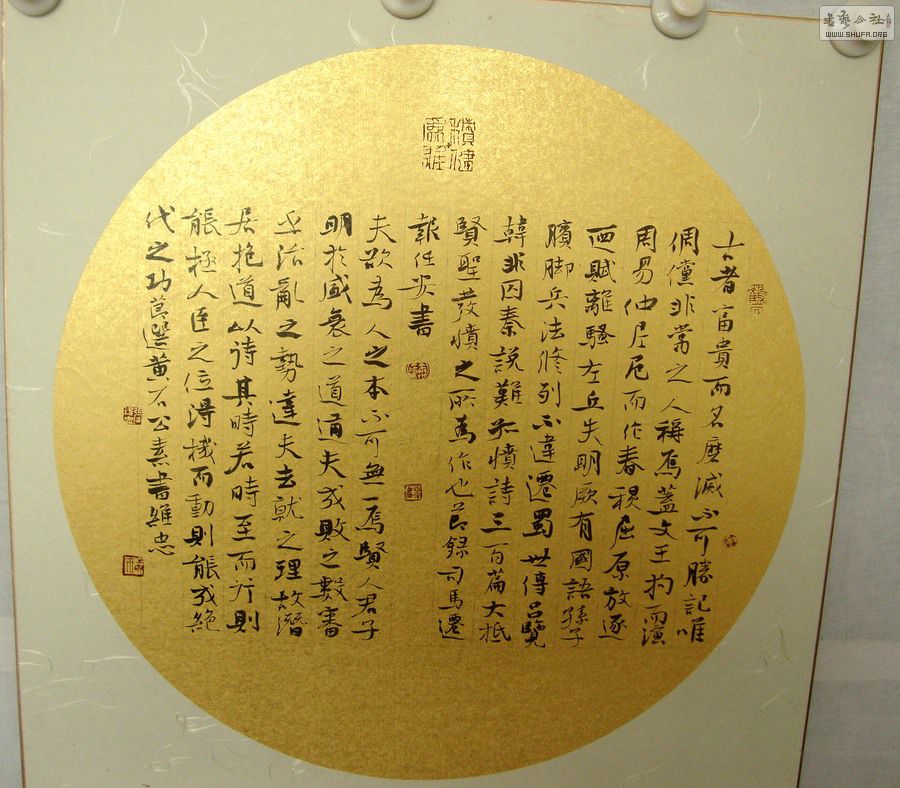 古者富貴而名磨滅不可勝記唯
倜儻非常之人稱焉蓋文王拘而演
周易仲尼厄而作春秋屈原放逐
而賦離騷左丘失明厥有國語孫子
臏脚兵法修列不違遷蜀世傳呂覽
韓非囚秦說難孤憤詩三百篇大抵
賢聖發憤之所為作也節錄司馬遷
報任安書
夫欲為人之本不可無一焉賢人君子
明於盛衰之道通夫成敗之數審
乎治亂之勢達夫去就之理故潛
居抱道以待其時若時至而行則
能極人臣之位得機而動則能成絕
代之功節選黄石公素書維忠
書藝公社
WWW.SHUFA.ORG